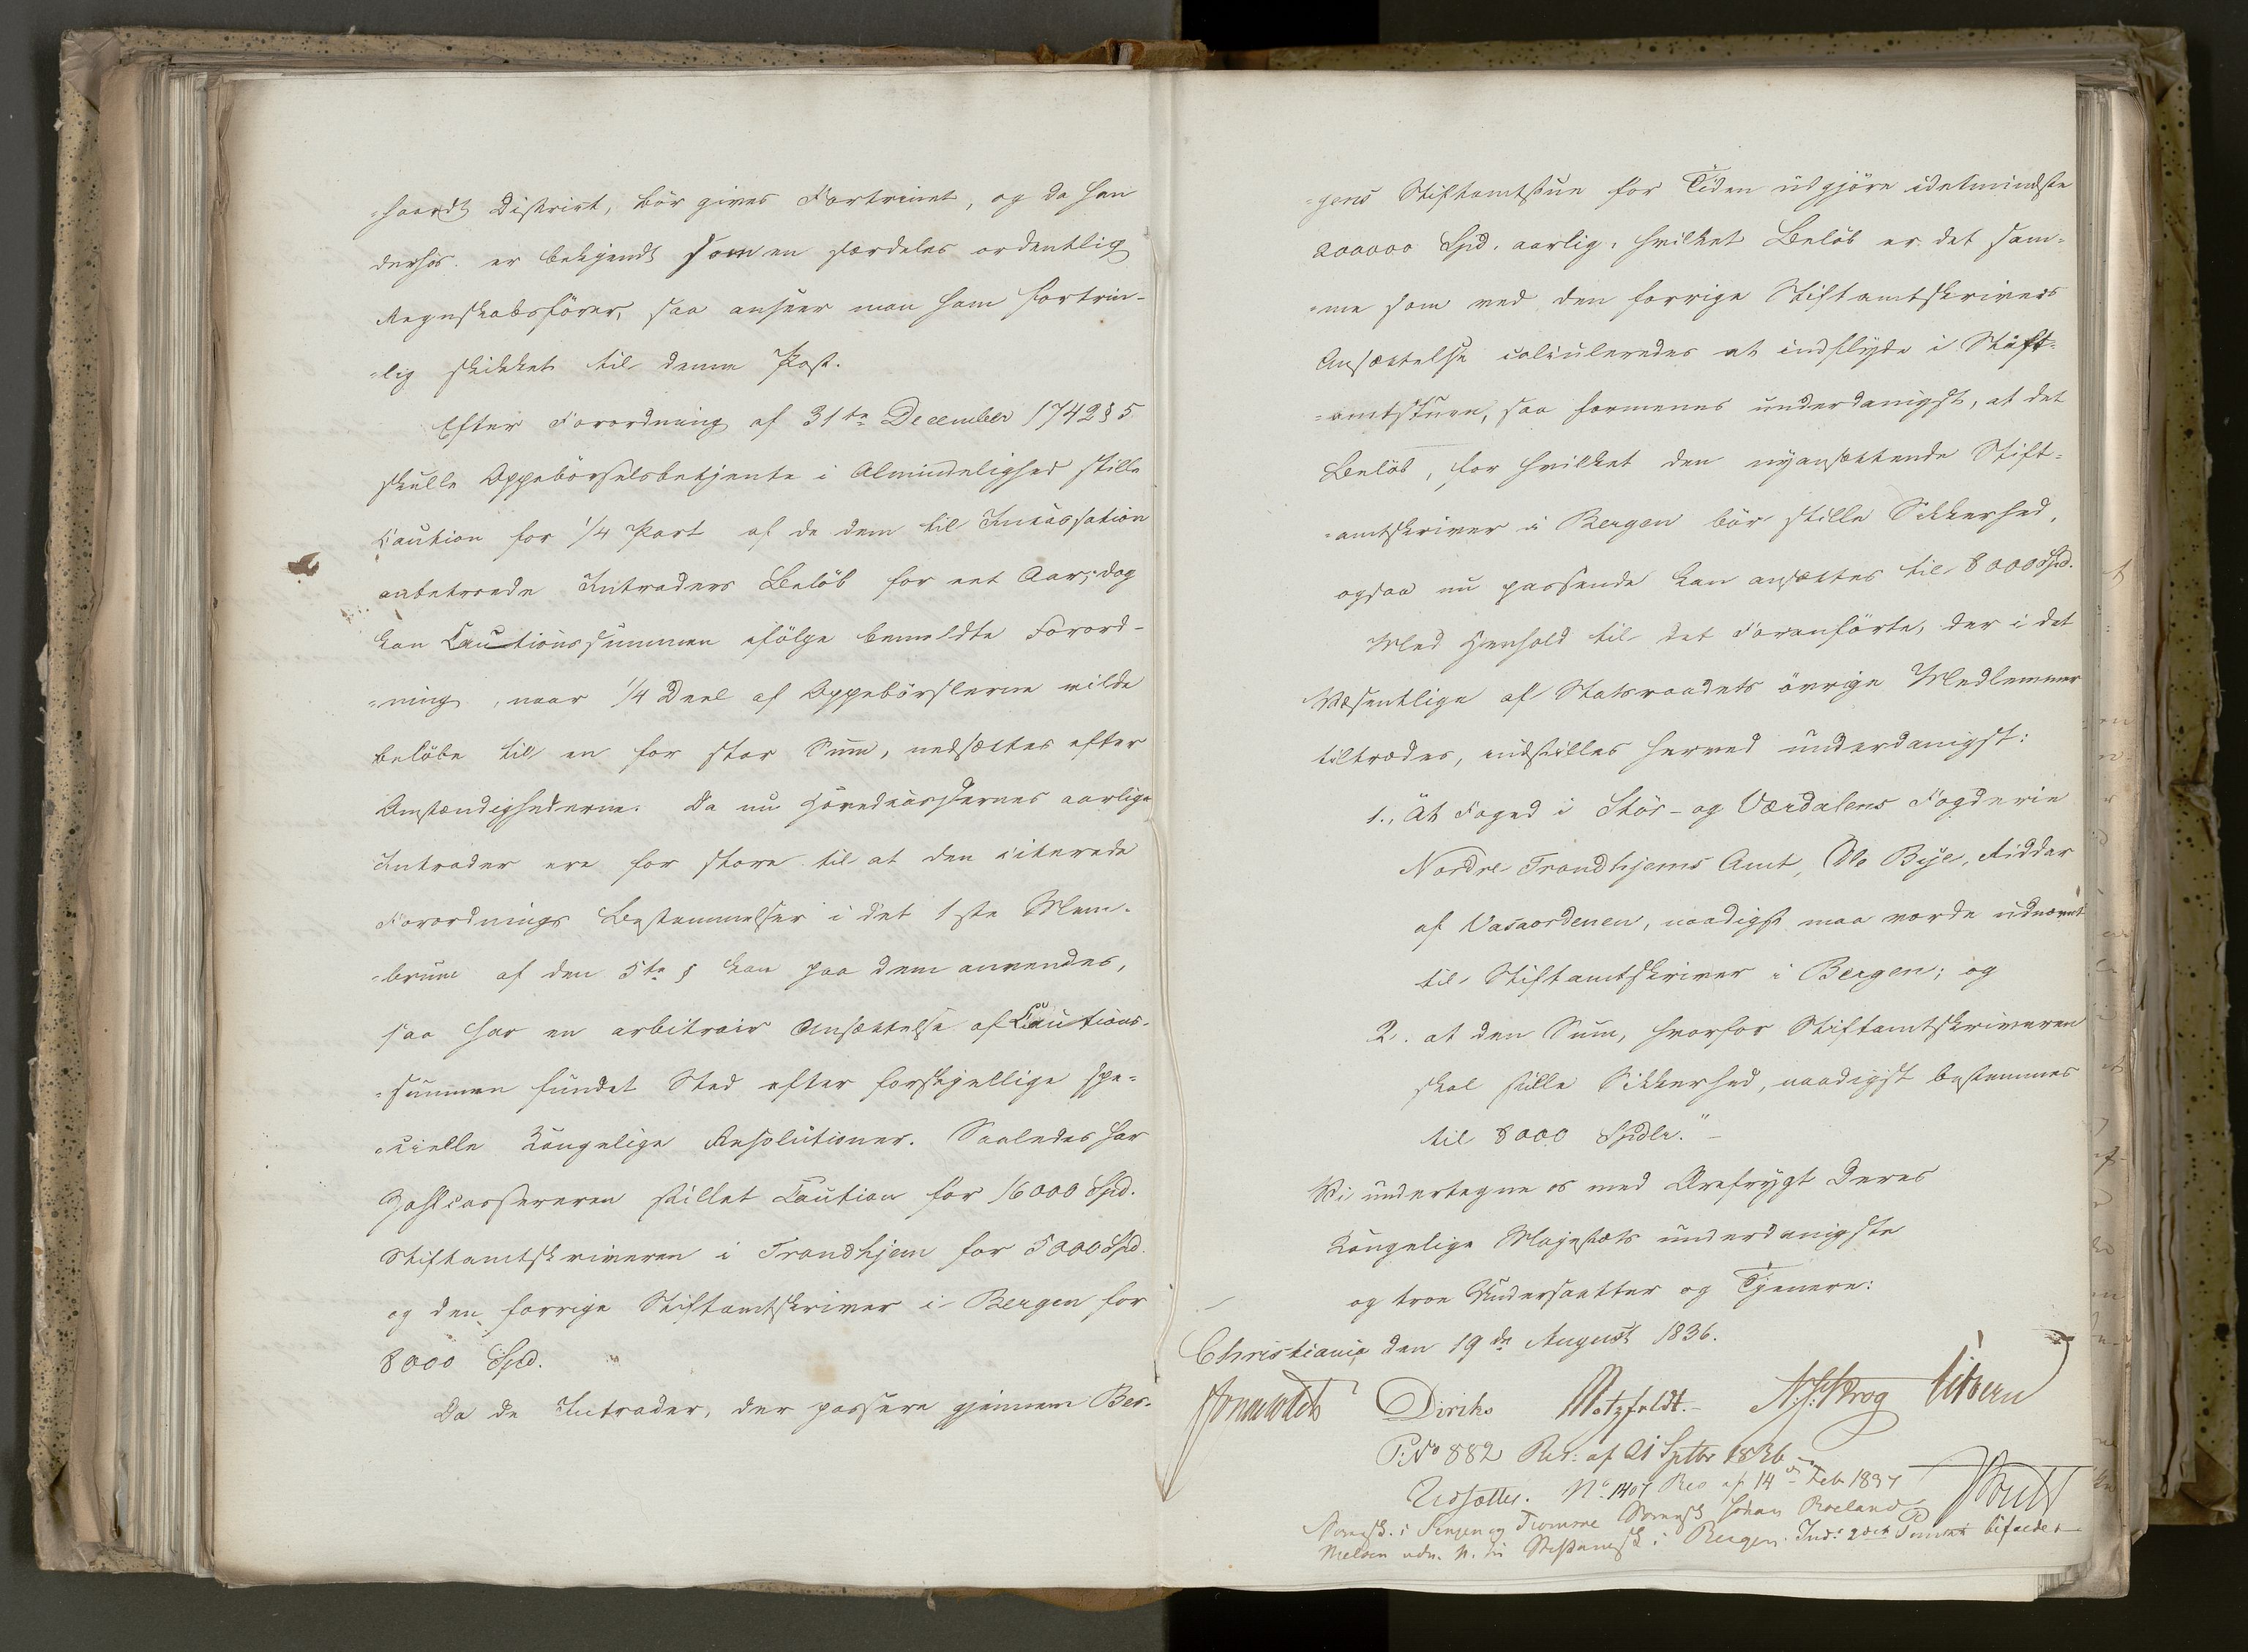 -haardt District, bör gives Fortrinet, og da han
derhos er bekjendt som en særdeles ordentlig
Regnskabsförer, saa anseer man ham fortrin-
-lig skikket til denne Post.
Efter Forordning af 31te December 1742 § 5
skulle Oppebörselsbetjente i Almindelighed stille
Caution for 1/4 Part af de dem til Incassation
anbetroede Intraders Belöb for eet Aar; dog
kan Cautionssummen ifölge bemeldte Forord-
-ning, naar 1/4 Deel af Oppebörslerne vilde
belöbe til en for stor Sum, nedsættes efter
Omstændighederne. Da nu Hovedcassernes aarlige
Intrader ere for store til at den citerede
Forordnings Bestemmelser i det 1ste Mem-
-brum af den 5te § kan paa dem anvendes,
saa har en arbitrair Ansættelse af Cautions-
-summen fundet Sted efter forskjellige spe-
-cielle Kongelige Resolutioner. Saaledes har
Zahlcassereren stillet Caution for 16000 Spd.
Stiftamtskriveren i Trondhjem for 5000 Spd.
og den forrige Stiftamtskriver i Bergen for
8000 Spd.
Da de Intrader, der passere gjennem Ber-
-gens Stiftamtstue for Tiden udgjöre idetmindste
200000 Spd. aarlig, hvilket Belöb er det sam-
-me som ved den forrige Stiftamtskrivers
Ansættelse calculeredes at indflyde i Stift-
-amtstuen, saa formenes underdanigst, at det
Belöb, for hvilket den nyansættende Stift-
-amtskriver i Bergen bör stille Sikkerhed,
ogsaa nu passende kan ansættes til 8000 Spd.
Med Henhold til det Foranförte, der i det
Væsentlige af Statsraadets övrige Medlemmer
tiltrædes, indstilles herved underdanigst:
1., At Foged i Stör- og Værdalens Fogderie
Nordre Trondhjems Amt, Ole Bye, Ridder
af Vasaordenen, naadigst maa vorde udnævnt
til Stiftamtskriver i Bergen; og
2. at den Sum, hvorfor Stiftamtskriveren
skal stille Sikkerhed, naadigst bestemmes
til 8000 Spdlr."
Vi undertegne os med Ærefrygt Deres
Kongelige Majestæts underdanigste
og troe Undersaatter og Tjenere:
Christiania den 19de August 1836.
Diriks Motzfeldt. N. Krog Sibbern
P. No 882 Res: af 21 Septbr 1836
Udsættes. No 1407 Res af 14de Feb 1837
Sorensk. i Senjen og Tromsoe Sorensk Johan Roeland
Nielsen udn. n. til Stiftamtsk i Bergen. Ind: 2det Punkt bifaldes